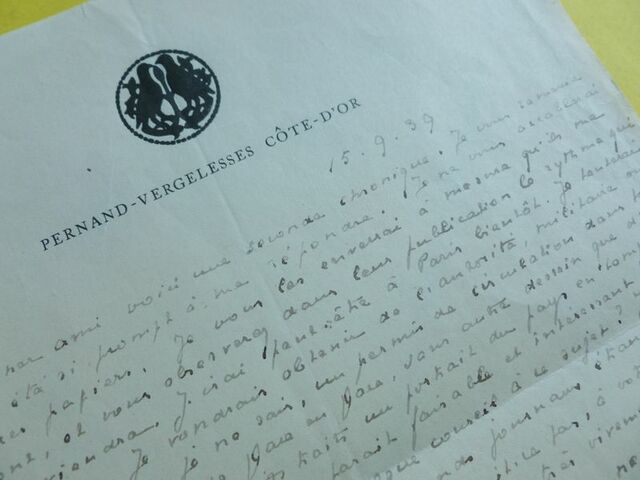 PERNAND-VERGELESSES CÔTE-D'OR
15.9.39
her ami voici une seconde chronique. Je vous remercie
été si prompt à me répondre. Je ne vous accablerai
papiers. Je vous les enverrai à mesure qu'ils me
et vous observerez dans leur publication le rythme qui
viendra. J'irai peut-être à Paris bientôt. Je
Je voudrais obtenir de l'autorité, militaire ou
je ne sais, un permis de circulation dans
en sans autre dessein que
trait un portrait du pays en
paraît faisable et intéressant
que conseil à ce sujet?
journaux étant
pas, à vo
très vivem